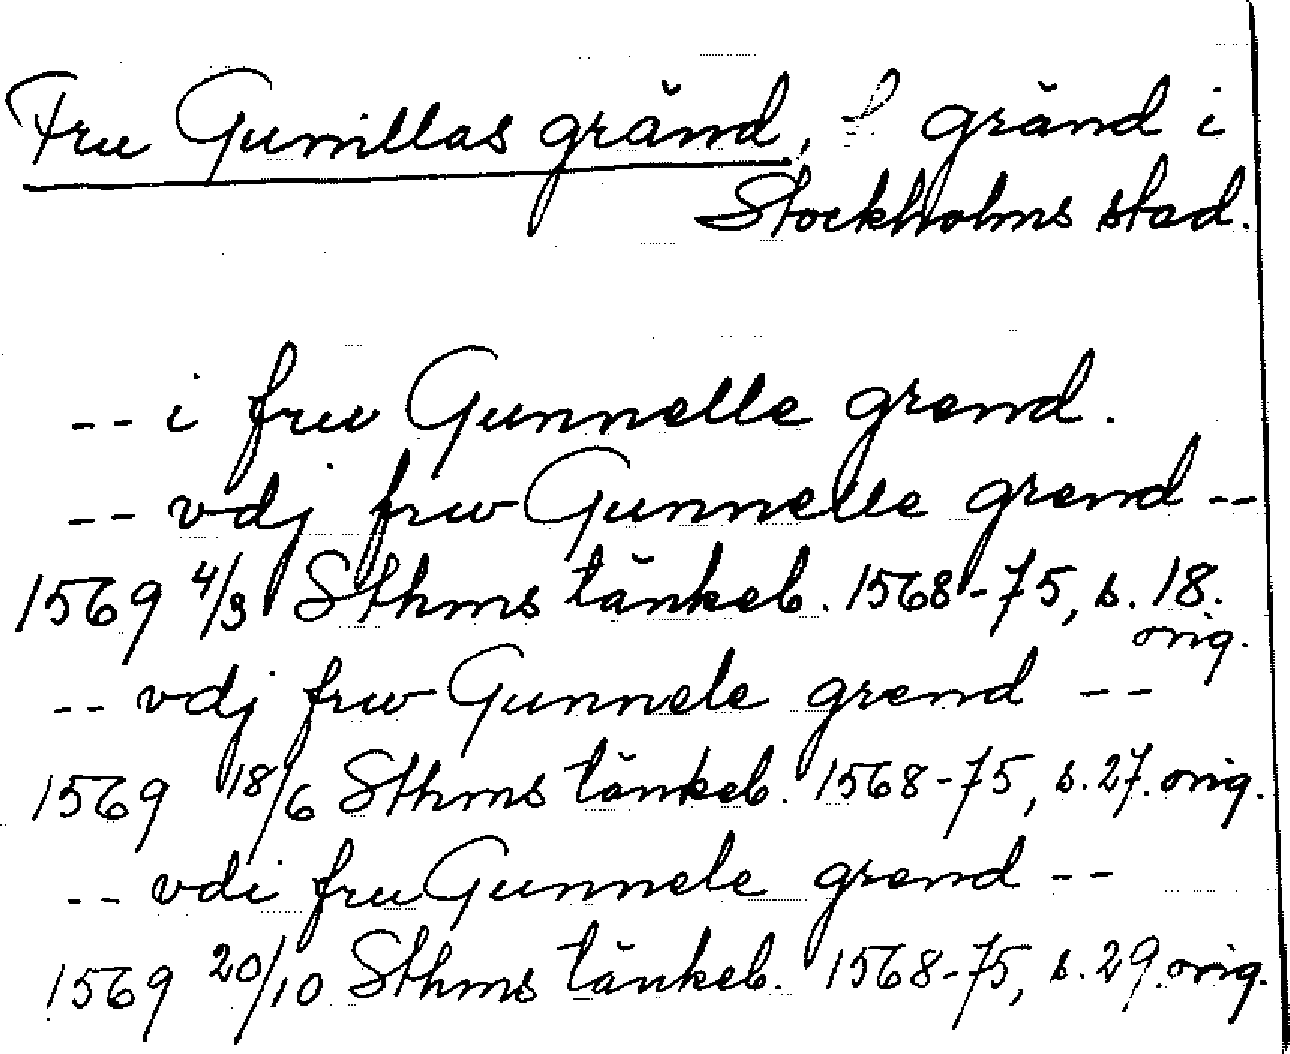 Fru Gunnillas gränd, gränd i
Stockholms stad.
-- i frw Gunnelle grend.
-- vdj frw Gunnelle grend --
1569 4/3 Sthms tänkeb. 1568-75, s. 18.
orig.
-- vdj frw Gunnele grend --
1569 18/6 Sthms tänkeb. 1568-75, s. 27. orig.
-- vdi fru Gunnele grend --
1569 20/10 Sthms tänkeb. 1568-75, s. 29. orig.